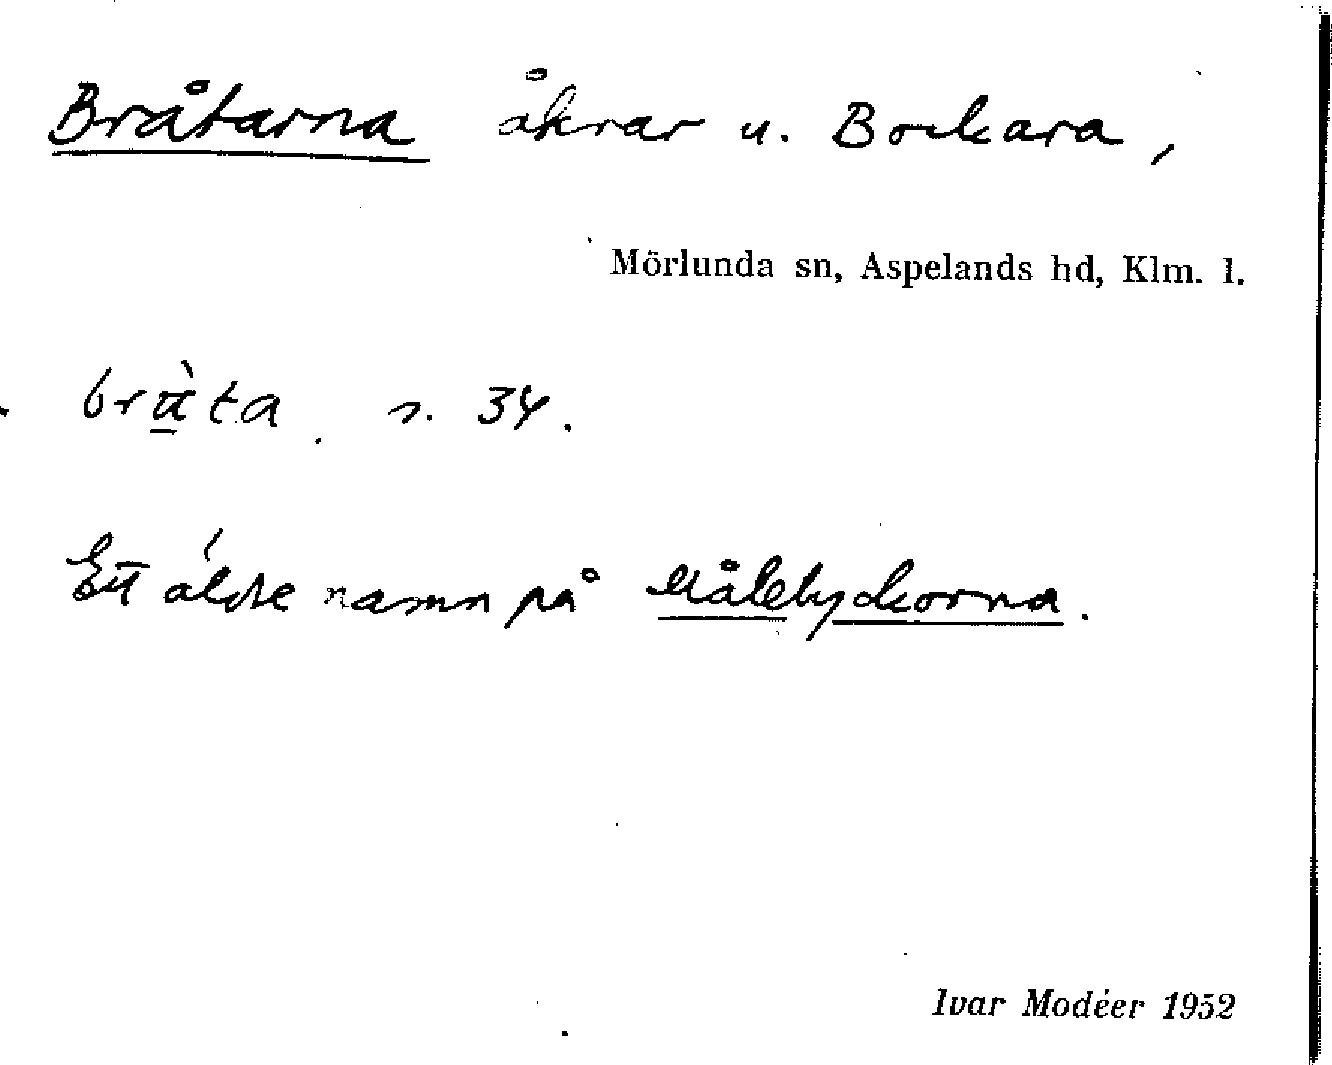 Bråtarna åkrar u. Bockara,
Mörlunda sn, Aspelands hd, Klm. l.
s. 34.
Ett äldre namn på Målelyckorna.
Ivar Modéer 1952